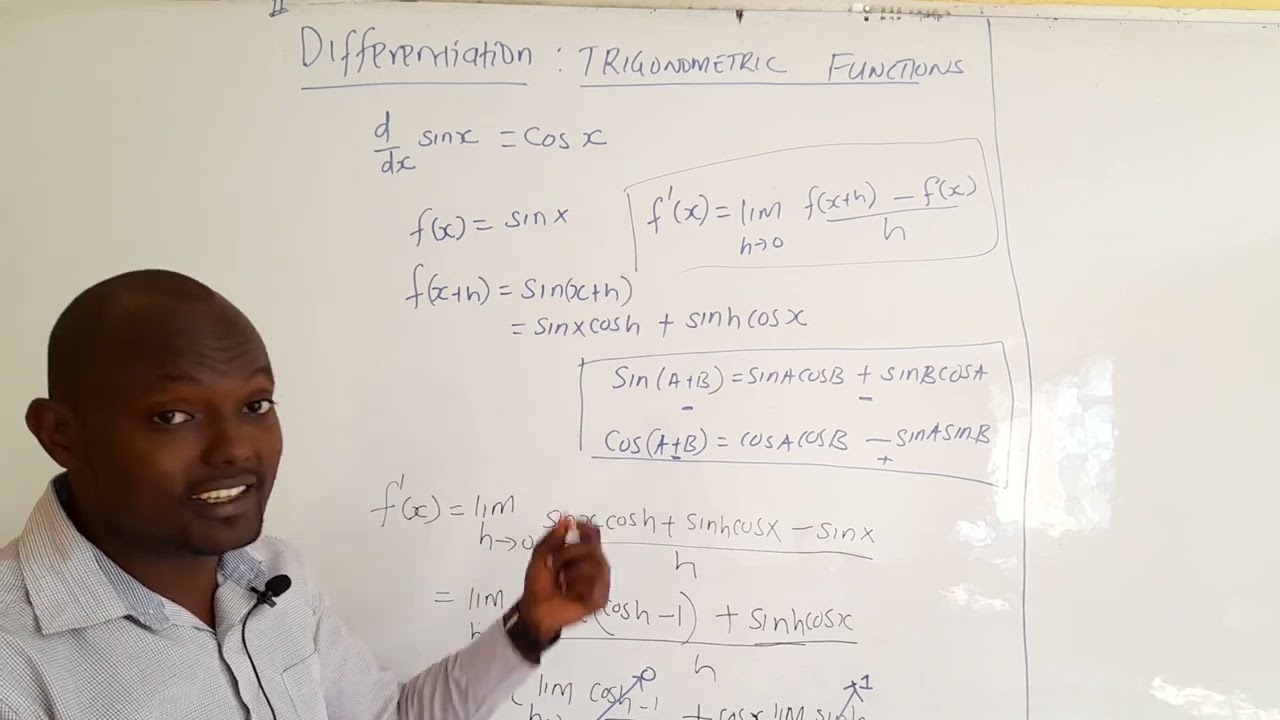 Differentiation : TRIGONOMETRIC FUNCTIONS
d/dx sinx = cos x
f(x) = sin x
f'(x) = lim h→0 f(x+h) − f(x) / h
f(x+h) = sin(x+h)
= sinxcosh + sinhcosx
Sin(A+B) = sinAcosB + sinBcosA
− −
Cos(A+B) = cosAcosB − sinAsinB
− +
f'(x) = lim h→0 sinxcosh + sinhcosx − sinx / h
= lim (cosh −1) + sinhcosx / h
lim cosh −1 0 + cosx lim sinh 1